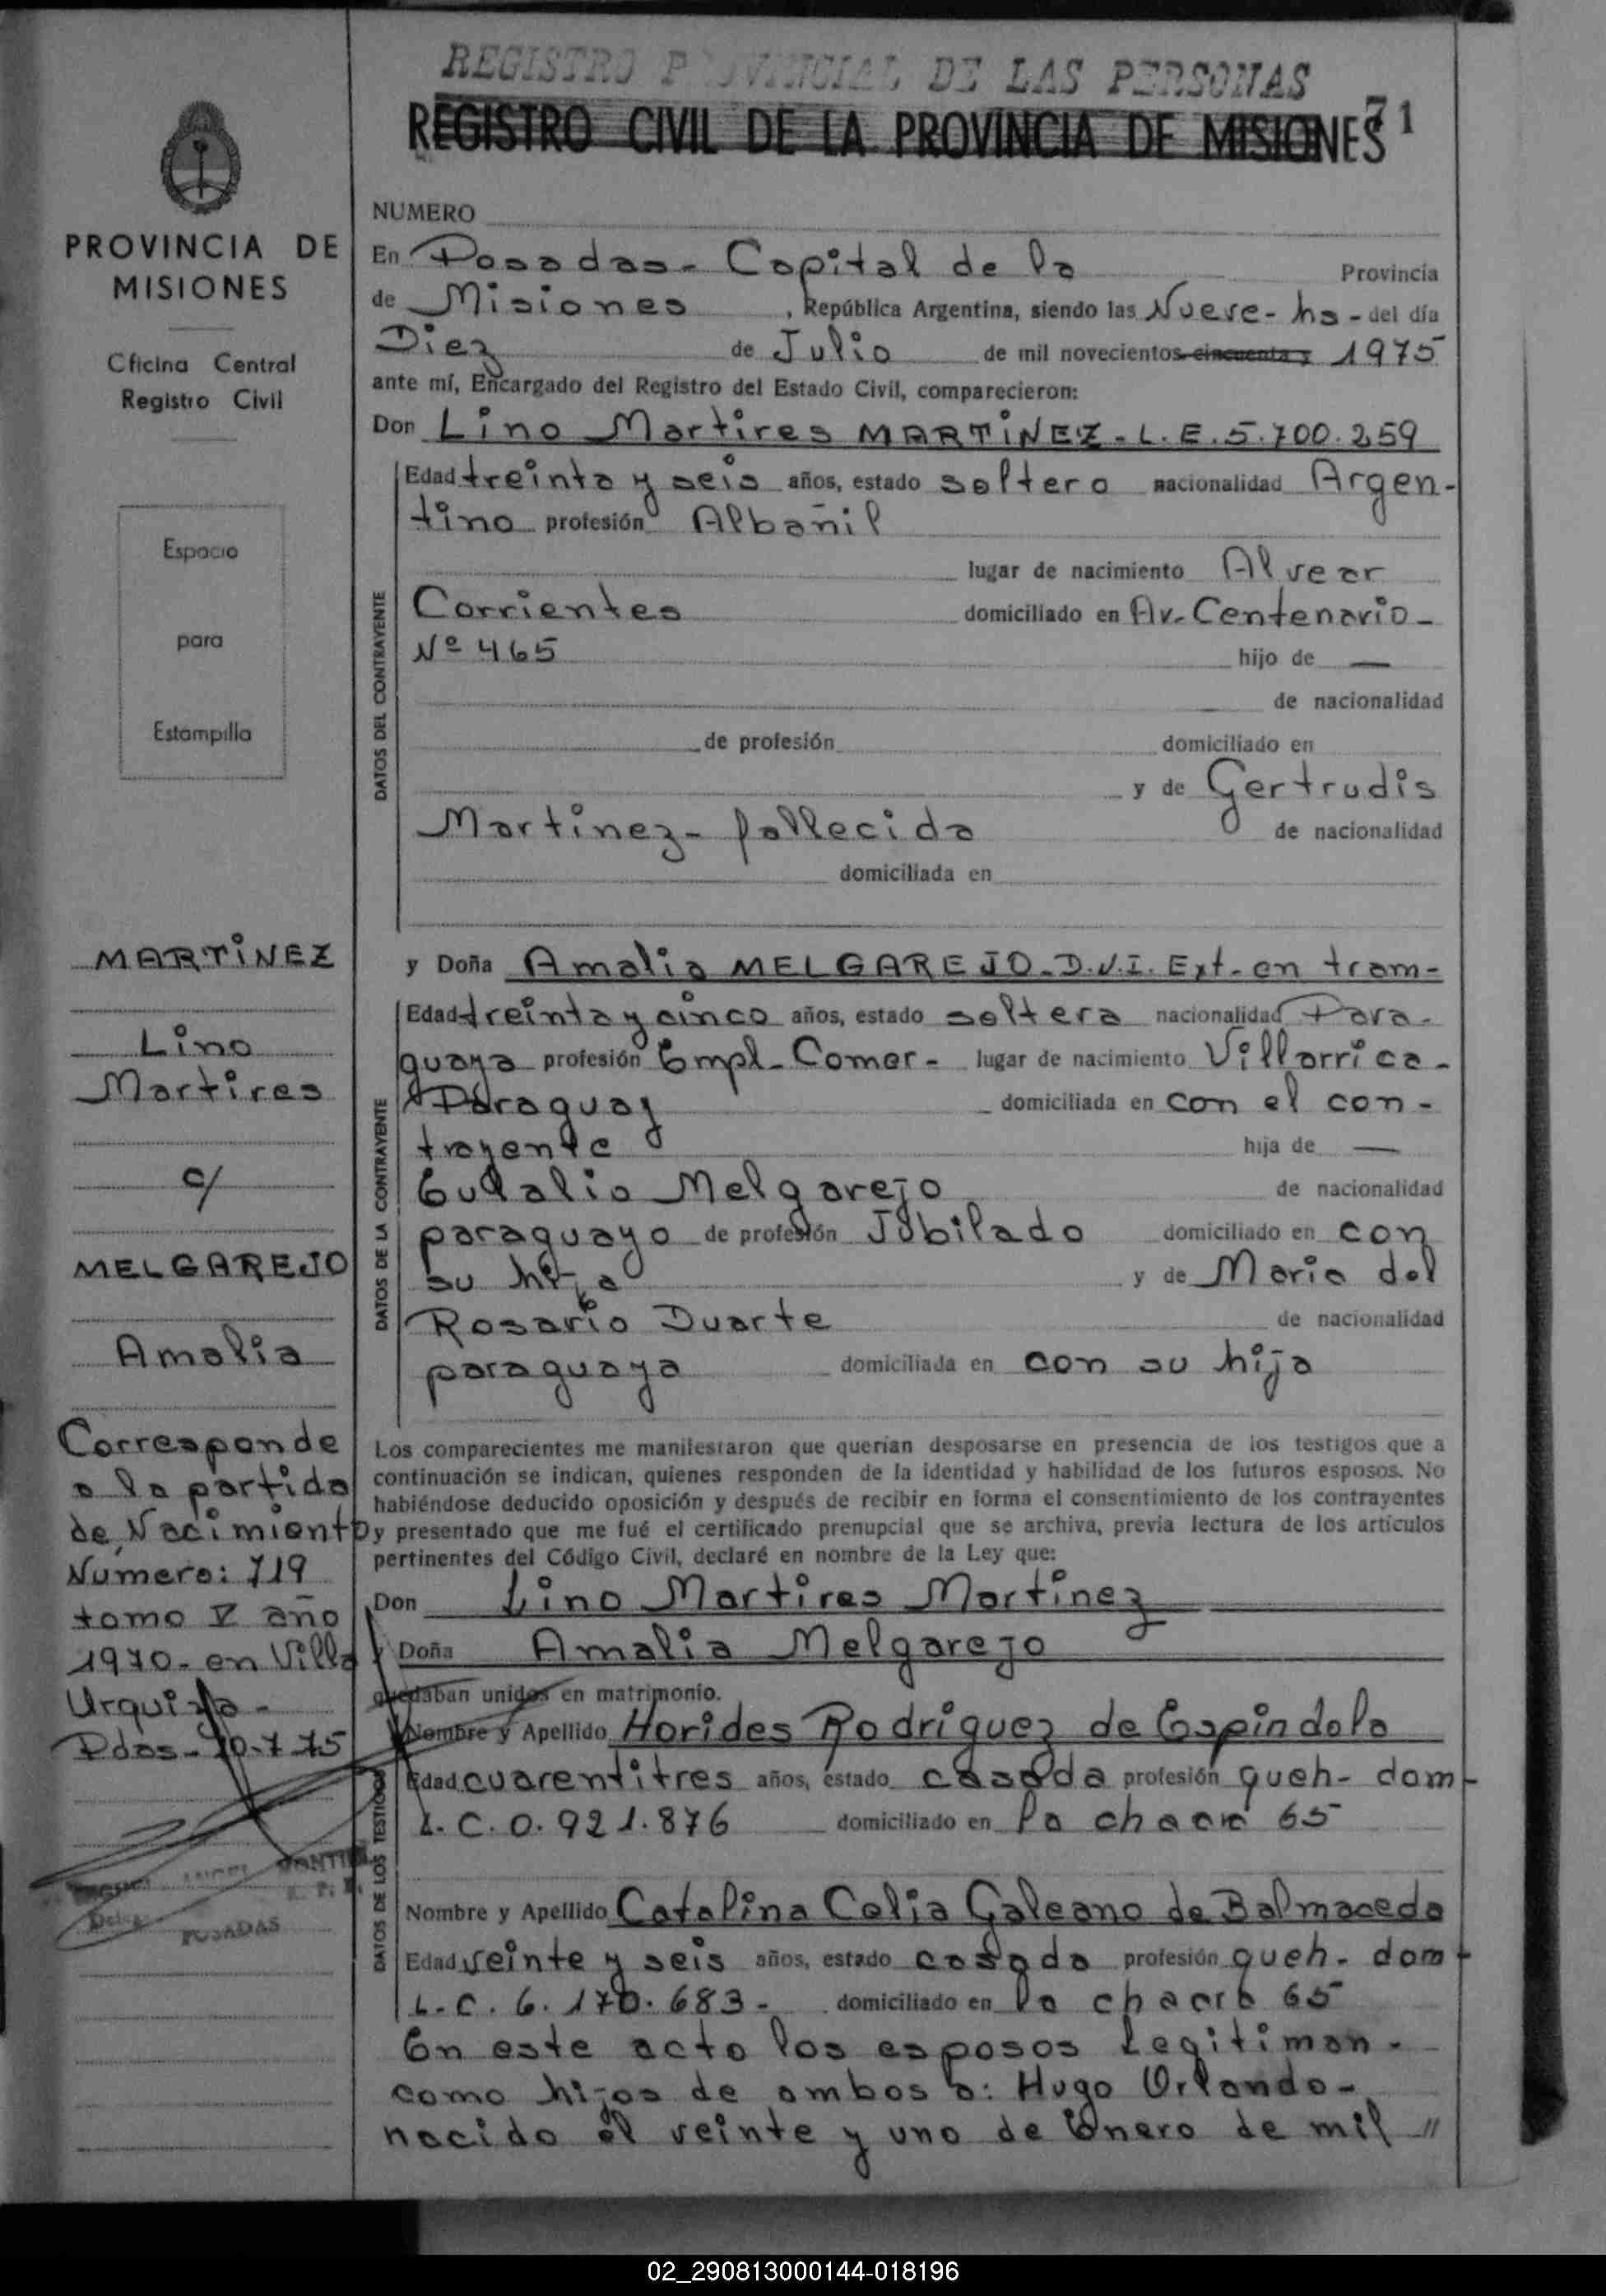 REGISTRO PROVINCIAL DE LAS PERSONAS
REGISTRO CIVIL DE LA PROVINCIA DE MISIONES
71
PROVINCIA DE
MISIONES
Oficina Central
Registro Civil
Espacio
para
Estampilla
MARTINEZ
Lino
Martires
c/
MELGAREJO
Amalia
Corresponde
a la partida
de Nacimiento
Numero: 719
tomo V año
1970- en Villa
Urquiza-
Pdas- 10-7-75
ANGEL
POSADAS
NUMERO
En Posadas- Capital de la Provincia
de Misiones, República Argentina, siendo las Nueve- hs- del día
Diez de Julio de mil novecientos cincuenta y 1975
ante mí, Encargado del Registro del Estado Civil, comparecieron:
Don Lino Martires MARTINEZ- L.E. 5.700.259
DATOS DEL CONTRAYENTE
Edad treinta y seis años, estado soltero nacionalidad Argen-
tino profesión Albañil
lugar de nacimiento Alvear
Corrientes domiciliado en Av. Centenario-
Nº 465 hijo de —
de nacionalidad
de profesión domiciliado en
y de Gertrudis
Martinez- fallecida de nacionalidad
domiciliada en
y Doña Amalia MELGAREJO- D.N.I. Ext- en tram-
DATOS DE LA CONTRAYENTE
Edad treinta y cinco años, estado soltera nacionalidad Para-
guaya profesión Empl- Comer- lugar de nacimiento Villarrica-
Paraguay domiciliada en con el con-
trayente hija de —
Eulalio Melgarejo de nacionalidad
paraguayo de profesión Jubilado domiciliado en con
su hija y de Maria del
Rosario Duarte de nacionalidad
paraguaya domiciliada en con su hija
Los comparecientes me manifestaron que querían desposarse en presencia de los testigos que a
continuación se indican, quienes responden de la identidad y habilidad de los futuros esposos. No
habiéndose deducido oposición y después de recibir en forma el consentimiento de los contrayentes
y presentado que me fué el certificado prenupcial que se archiva, previa lectura de los artículos
pertinentes del Código Civil, declaré en nombre de la Ley que:
Don Lino Martires Martinez
y Doña Amalia Melgarejo
quedaban unidos en matrimonio.
DATOS DE LOS TESTIGOS
Nombre y Apellido Horides Rodriguez de Espindola
Edad cuarentitres años, estado casada profesión queh- dom-
L.C. 0.921.876 domiciliado en la chacra 65
Nombre y Apellido Catalina Celia Galeano de Balmaceda
Edad veinte y seis años, estado casada profesión queh- dom-
L.C. 6.170.683- domiciliado en la chacra 65
En este acto los esposos Legitiman-
como hijos de ambos a: Hugo Orlando-
nacido el veinte y uno de Enero de mil "
02_290813000144-018196